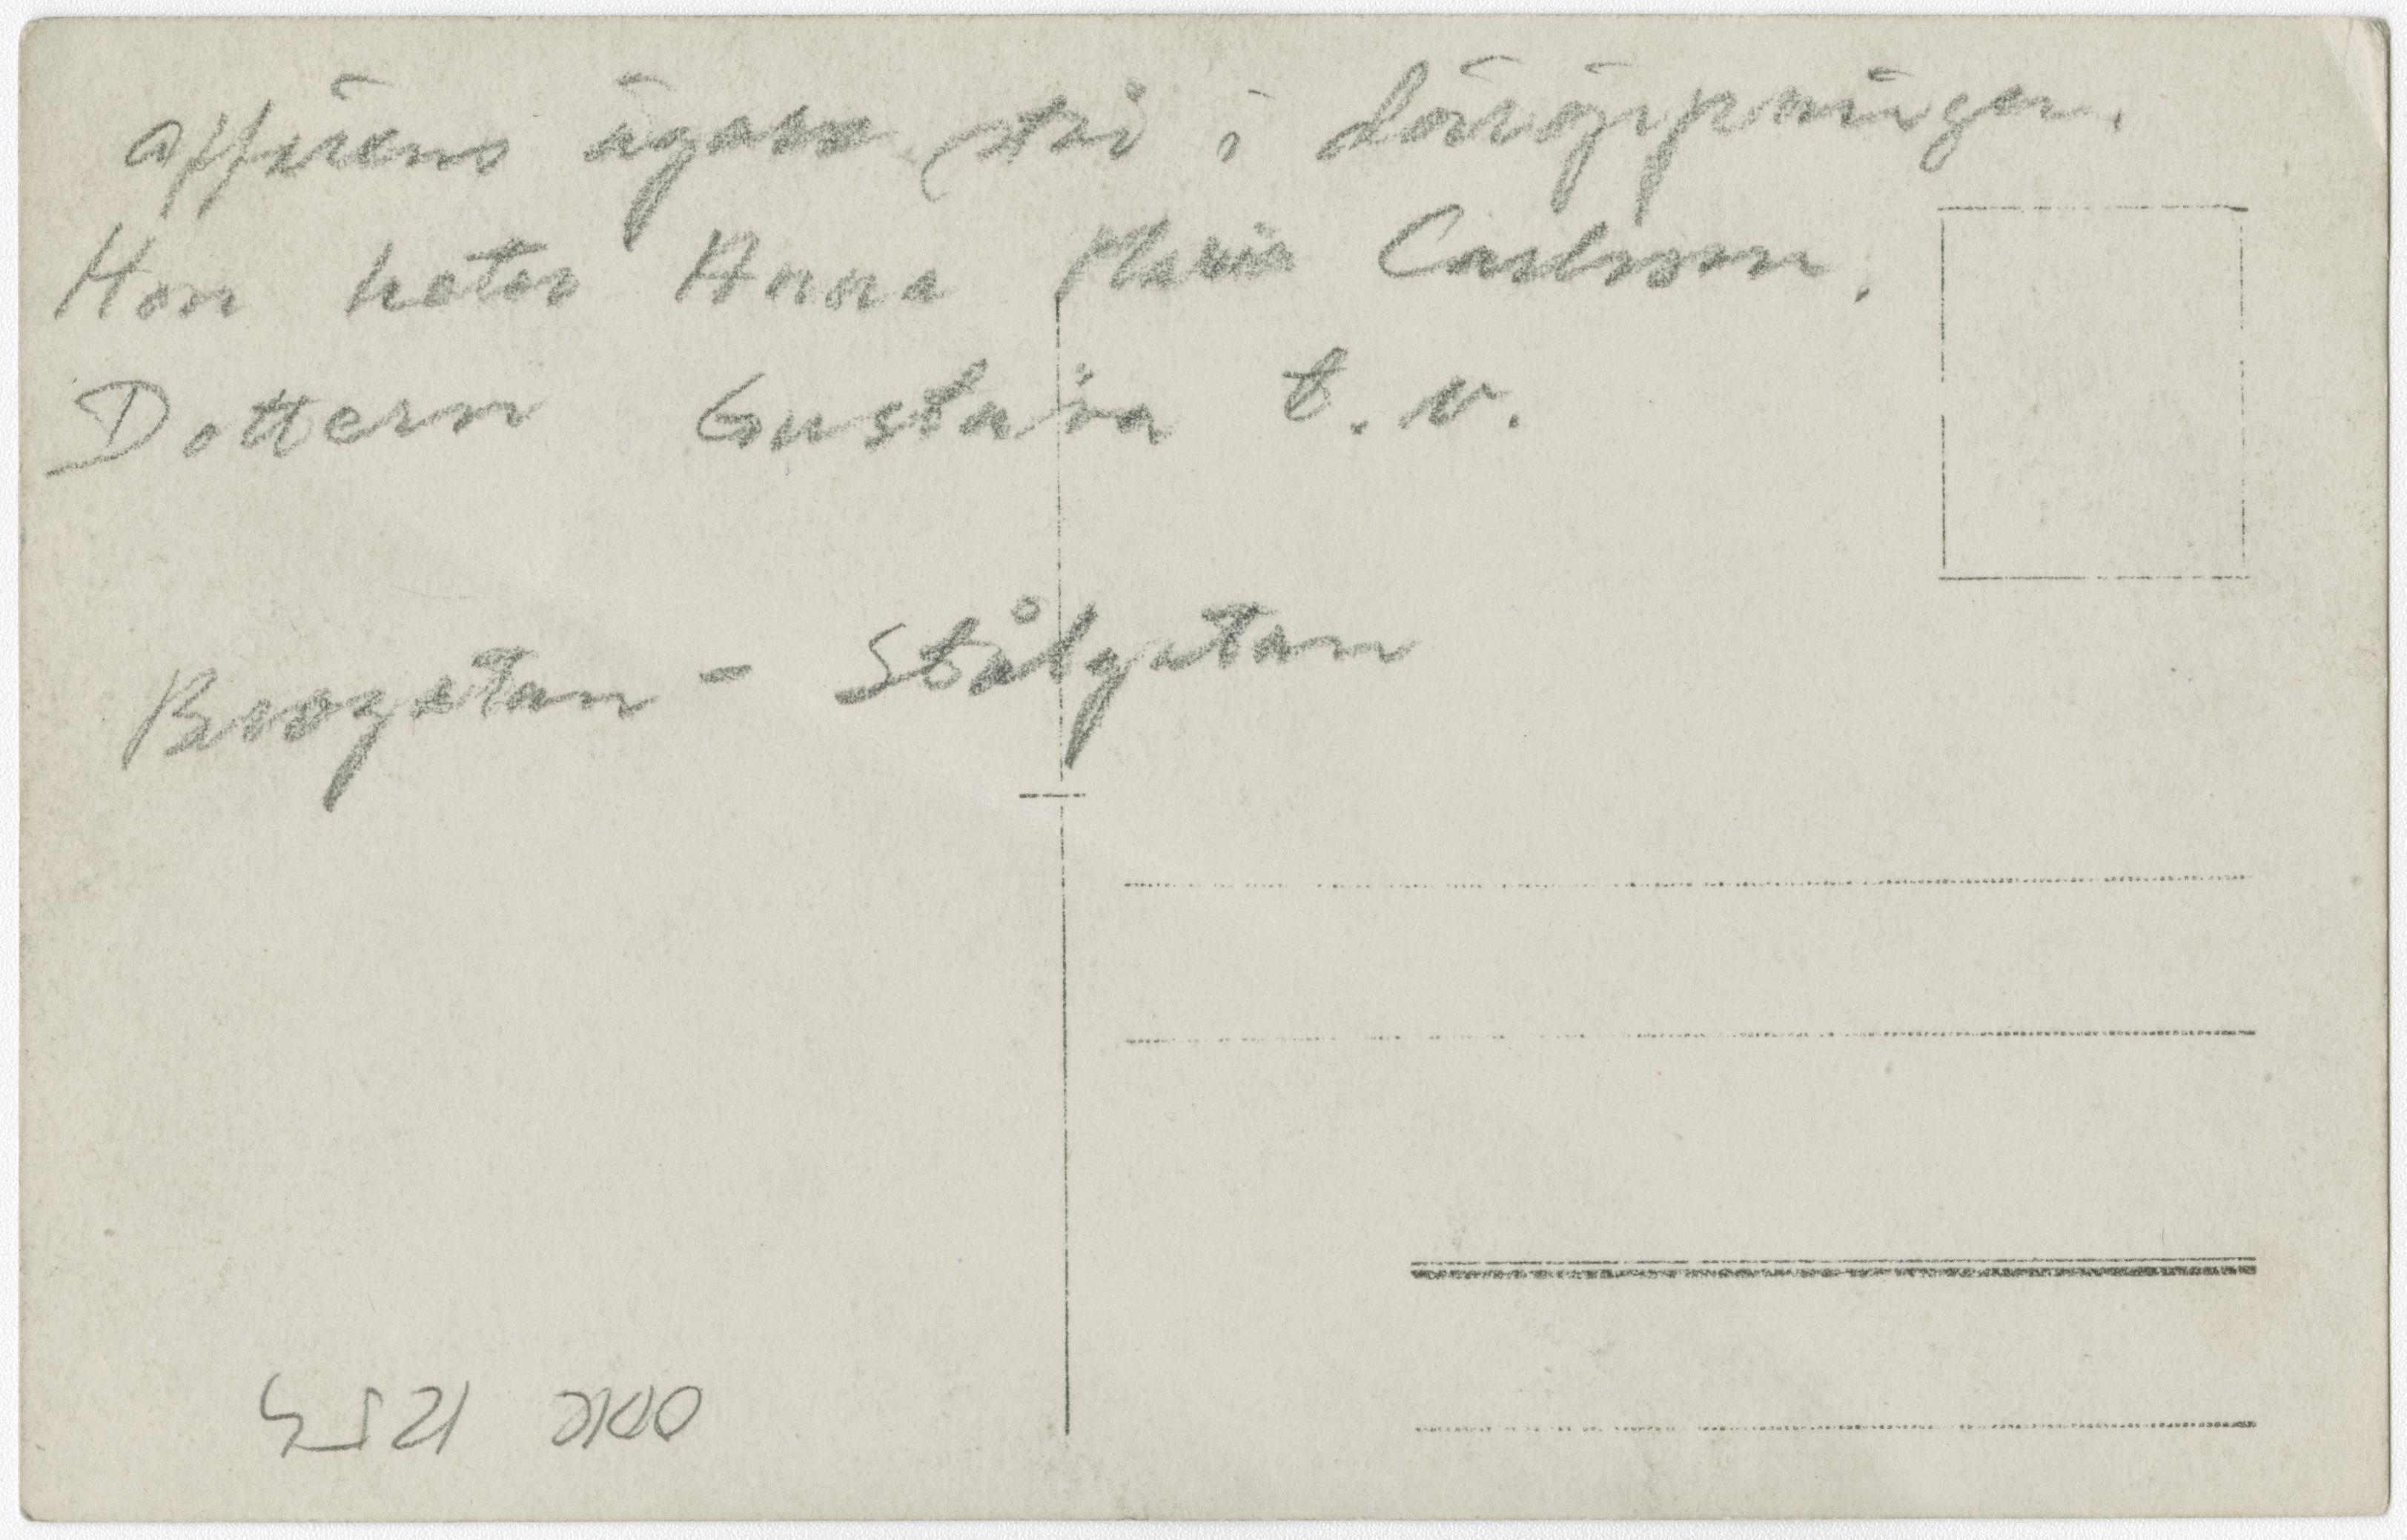 affärens ägare stå i dörröppningen.
Hon heter Anna Maria Carlsson.
Dottern Gustava t. v.
Brogatan - Stålgatan